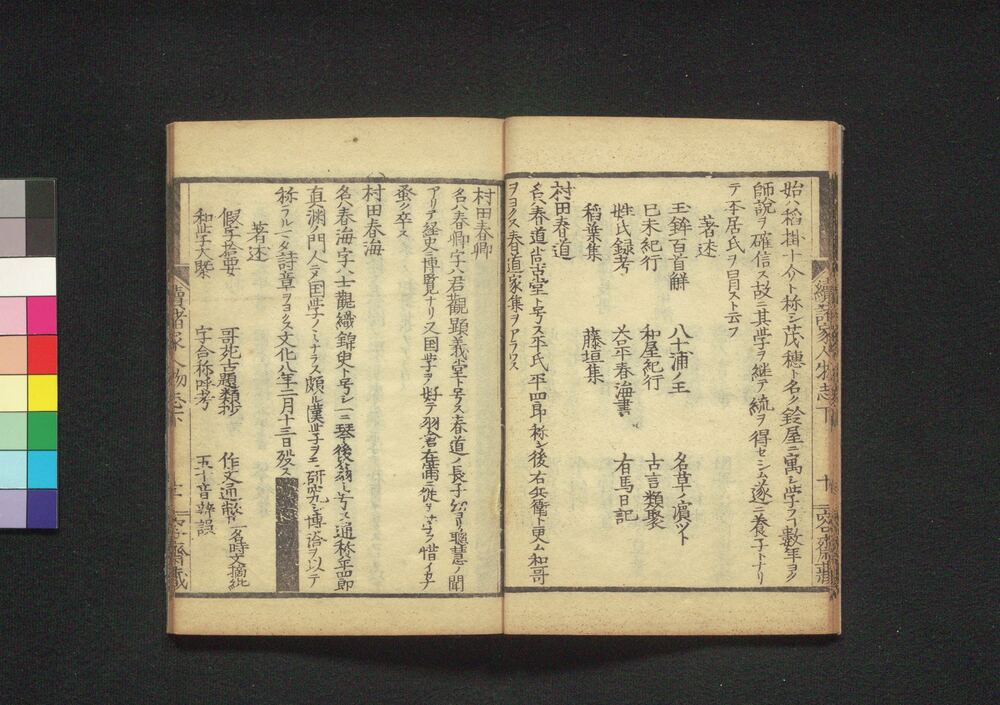 始ハ稲掛十介ト称シ茂穂ト名ク鈴屋ニ寓シ学フコ数年ヨク
師説ヲ確信ス故ニ其学ヲ継テ統ヲ得セシム遂ニ養子トナリ
テ本居氏ヲ冒スト云フ
著述
玉鉾百首解 八十浦ノ玉 名草ノ濱ツト
巳未紀行 和屋紀行 古言類聚
姓氏録考 答平春海書 有馬日記
稻葉集 藤垣集
村田春道
名ハ春道尚古堂ト号ス平氏平四郎ト称シ後右兵衛ト更ム和哥
ヲヨクス春道家集ヲアラワス
村田春卿
名ハ春卿字ハ君觀顕義堂ト号ス春道ノ長子幼ヨリ聰慧ノ聞
アリテ経史ニ博覧ナリ又国学ヲ好テ羽倉在満ニ従テ学フ惜イカナ
蚤ク卒ス
村田春海
名ハ春海字ハ士觀織錦史ト号シ一ニ琴後翁ト号ス通称平四郎
直渕ノ門人ニメ国学ノミナラス頗ル漢学ヲモ研究シ博洽ヲ以テ
称ラル又詩章ヲヨクス文化八年二月十三日歿ス
著述
假字拾要 哥苑古題類抄 作文通弊一名時文摘紕
和学大槩 字合称呼考 五十音辨誤
續諸家人物志下